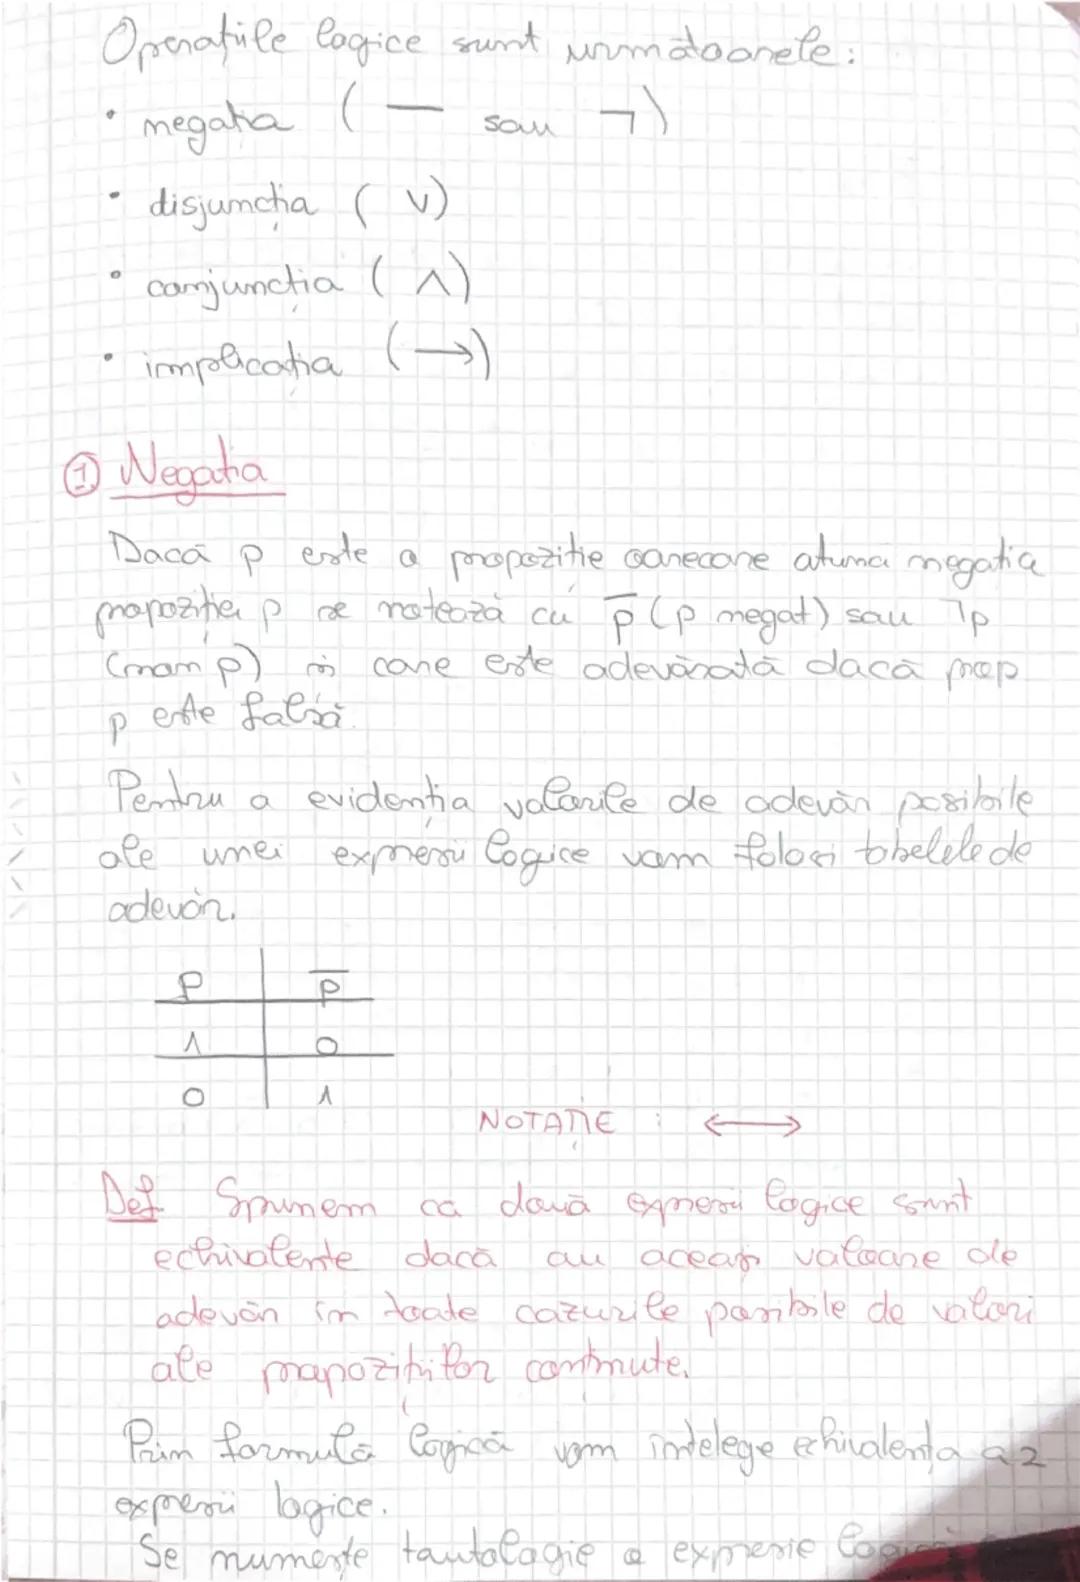 Operațiile logice sunt următoarele:
• negația ( — sau ¬)
• disjuncția ( ∨)
• conjuncția ( ∧)
• implicația (→)
① Negația
Dacă p este o propoziție oarecare atunci negația
propoziției p se notează cu p̅ (p negat) sau ⌉p
(non p) și care este adevărată dacă prop
p este falsă.
Pentru a evidenția valorile de adevăr posibile
ale unei expresii logice vom folosi tabelele de
adevăr.
p | p̅
1 | 0
0 | 1
NOTAȚIE : ⟷
Def. Spunem că două expresii logice sunt
echivalente dacă au aceași valoare de
adevăr în toate cazurile posibile de valori
ale propozițiilor conținute.
Prin formulă logică vom înțelege echivalența a 2
expresii logice.
Se numește tautologie o expresie logică